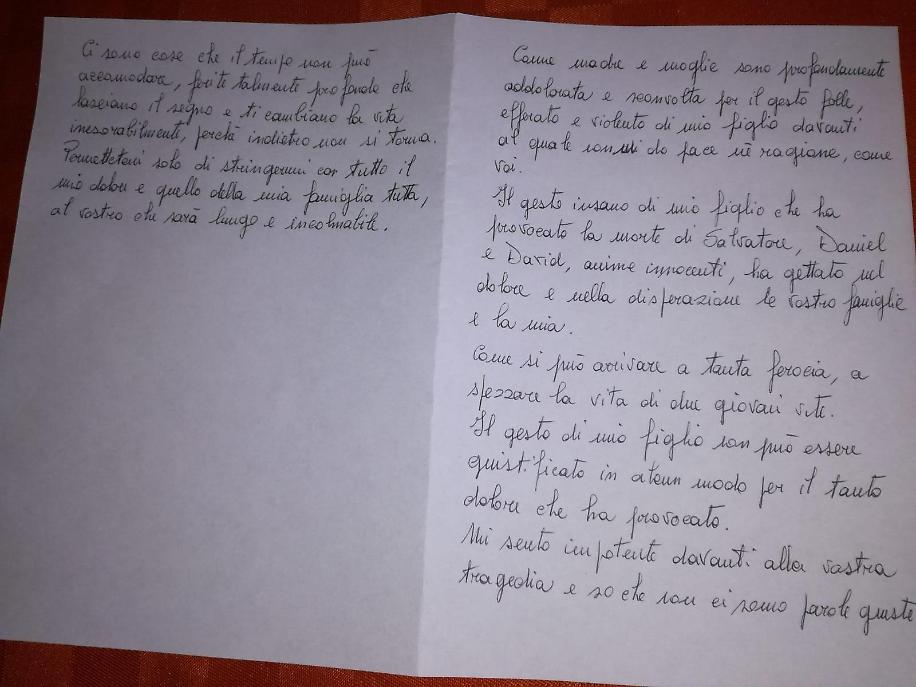 Ci sono cose che il tempo non può
accomodare, ferite talmente profonde che
lasciano il segno e ti cambiano la vita
inesorabilmente, perchè indietro non si torna.
Permettetemi solo di stringermi con tutto il
mio dolore e quello della mia famiglia tutta,
al vostro che sarà lungo e incolmabile.
Come madre e moglie sono profondamente
addolorata e sconvolta per il gesto folle,
efferato e violento di mio figlio davanti
al quale non mi do pace nè ragione, come
voi.
Il gesto insano di mio figlio che ha
provocato la morte di Salvatore, Daniel
e David, anime innocenti, ha gettato nel
dolore e nella disperazione le vostre famiglie
e la mia.
Come si può arrivare a tanta ferocia, a
spezzare la vita di due giovani vite.
Il gesto di mio figlio non può essere
guistificato in alcun modo per il tanto
dolore che ha provocato.
Mi sento impotente davanti alla vostra
tragedia e so che non ci sono parole giuste